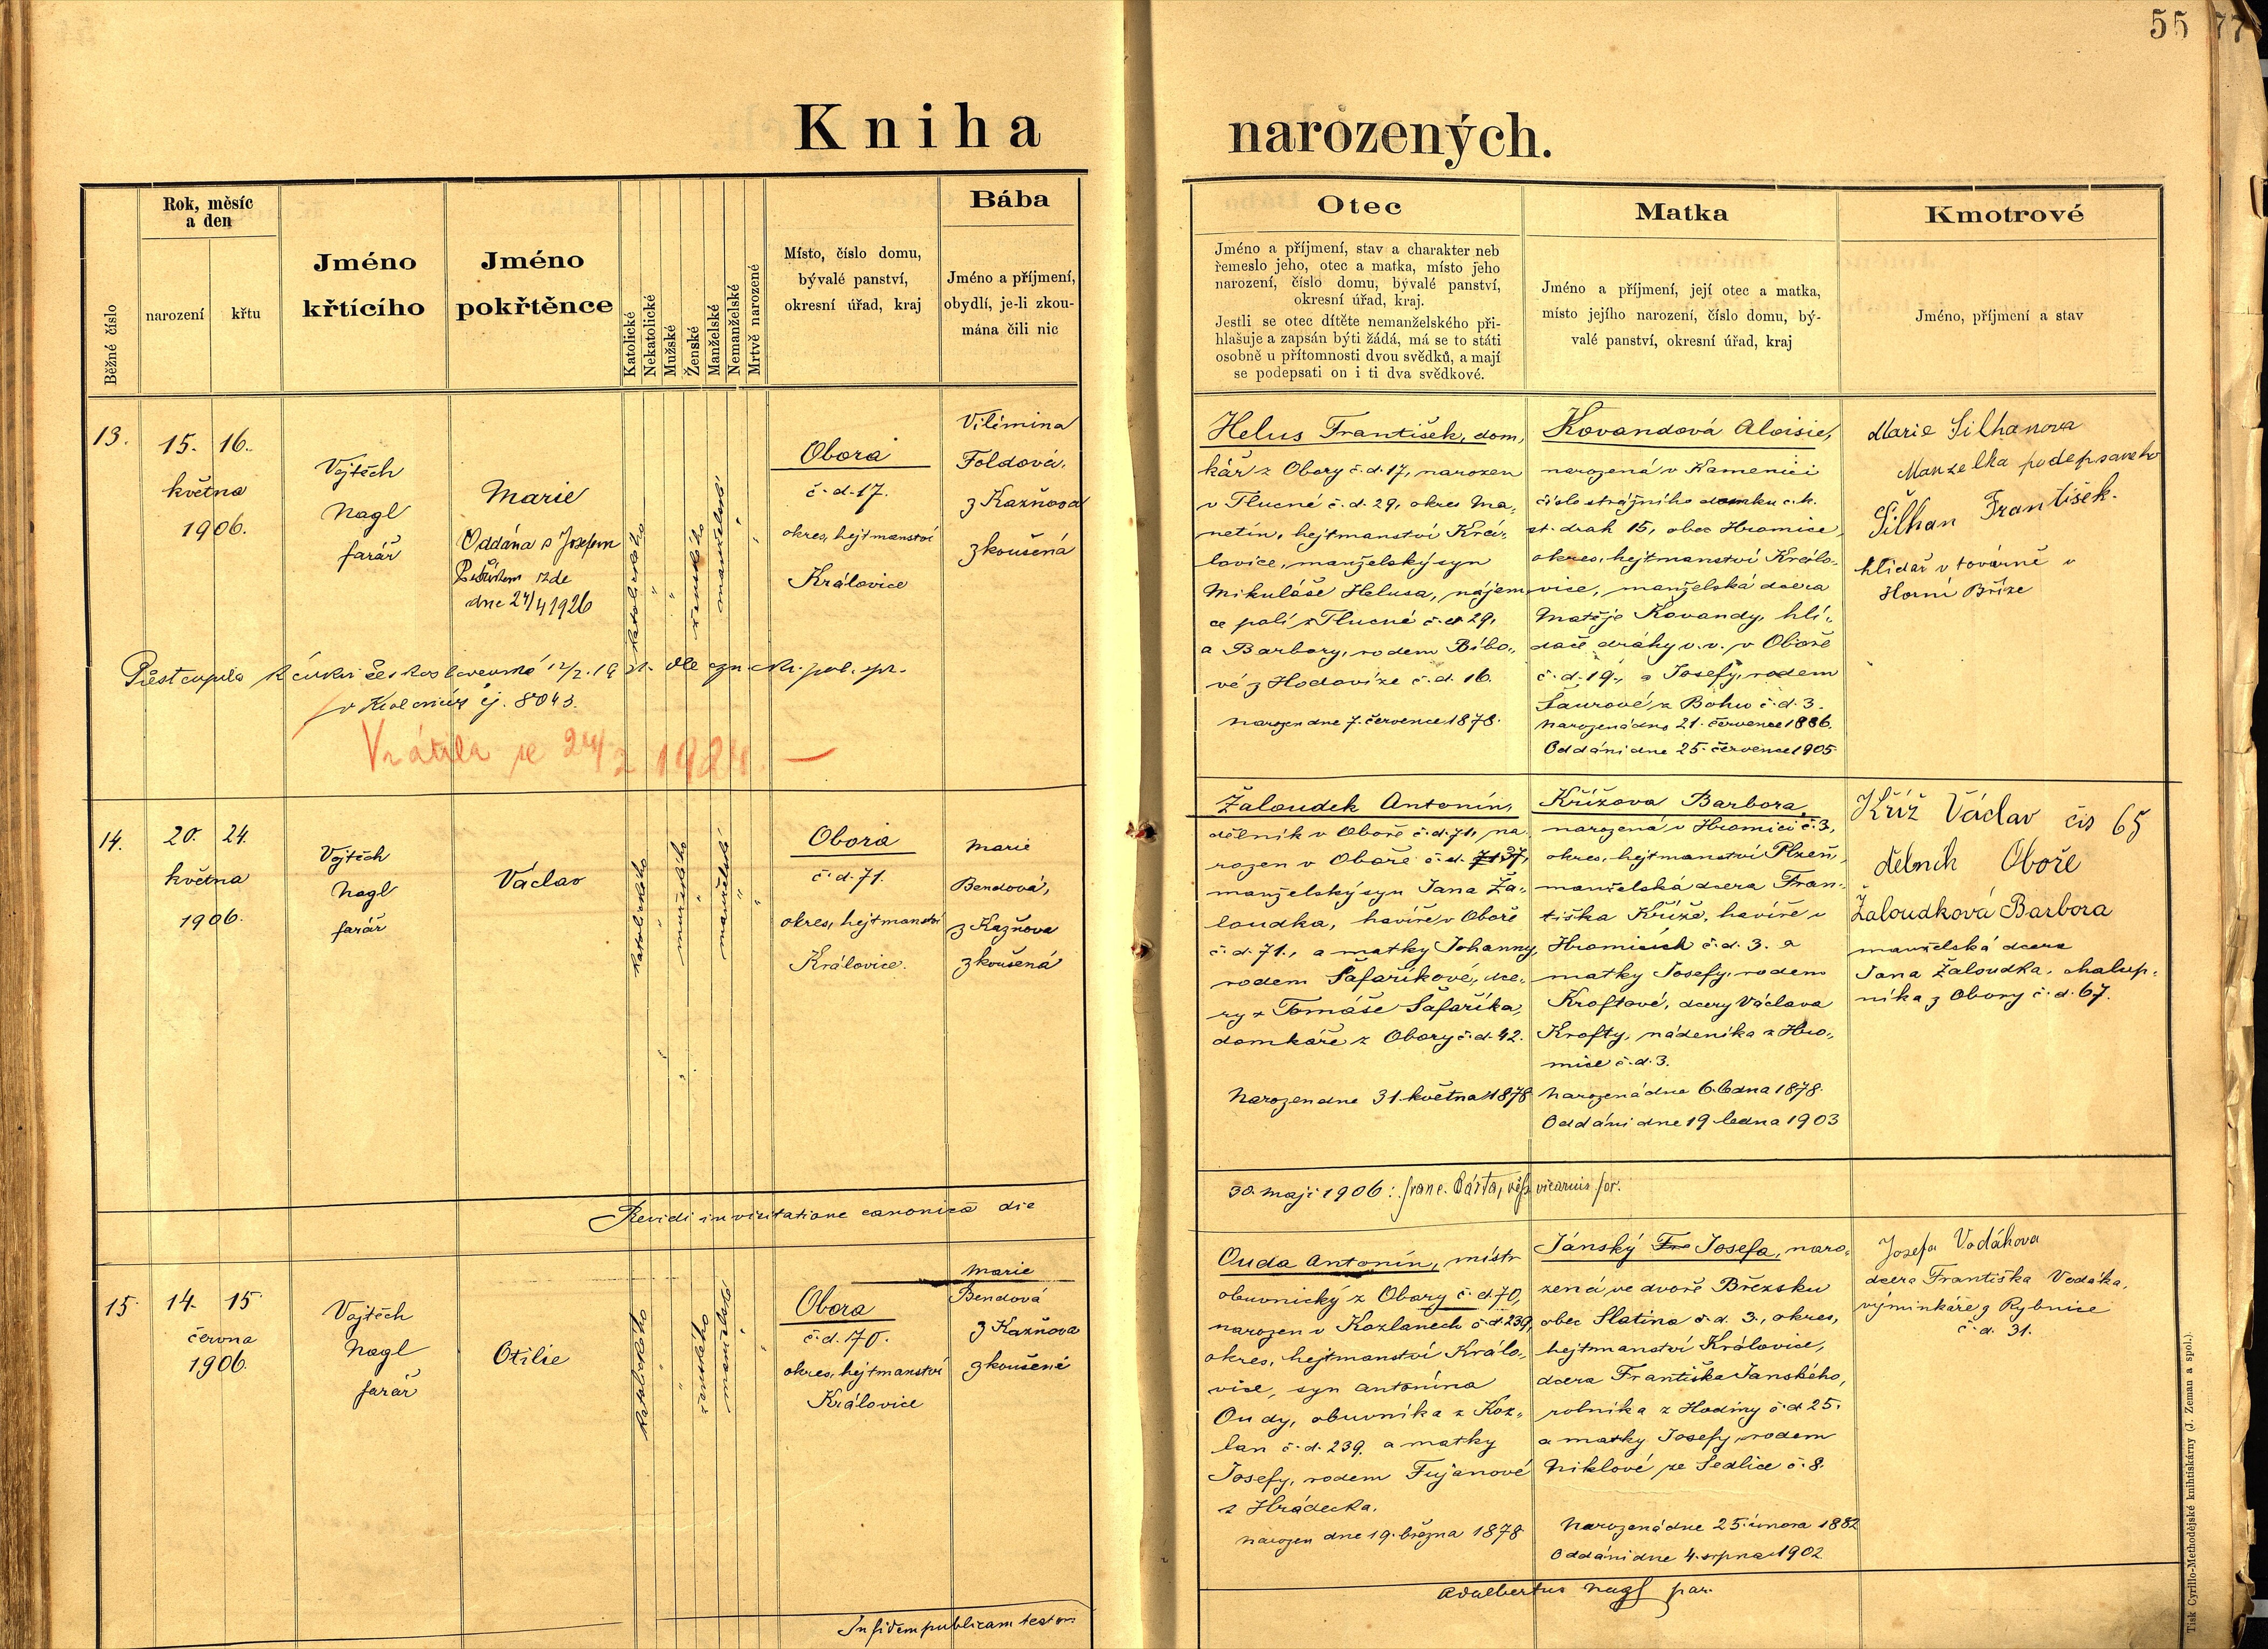 55
77
Kniha narozených.
Běžné číslo
Rok, měsíc
a den
narození
křtu
Jméno
křtícího
Jméno
pokřtěnce
Katolické
Nekatolické
Mužské
Ženské
Manželské
Nemanželské
Mrtvě narozené
Místo, číslo domu,
bývalé panství,
okresní úřad, kraj
Bába
Jméno a příjmení,
obydlí, je-li zkou-
mána čili nic
Otec
Jméno a příjmení, stav a charakter neb
řemeslo jeho, otec a matka, místo jeho
narození, číslo domu, bývalé panství,
okresní úřad, kraj.
Jestli se otec dítěte nemanželského při-
hlašuje a zapsán býti žádá, má se to státi
osobně u přítomnosti dvou svědků, a mají
se podepsati on i ti dva svědkové.
Matka
Jméno a příjmení, její otec a matka,
místo jejího narození, číslo domu, bý-
valé panství, okresní úřad, kraj
Kmotrové
Jméno, příjmení a stav
13.
15. 16.
května
1906.
Vojtěch
Nagl
farář
Marie
Oddána s Josefem
zde
dne 24/4 1926
katolického
" "
ženského
manželské
" "
Obora
č. d. 17.
okres, hejtmanství
Královice
Vilémina
Foldová,
z Kaznova
zkoušená
Přestoupila k církvi československé
v Kralovicích čj. 8043.
Vrátila se 24/2 1924. —
Helus František, dom„
kář z Obory č. d. 17, narozen
v Tlucné č. d. 29, okres Ma„
netín, hejtmanství Krá„
lovice, manželský syn
Mikuláše Helusa, nájem
ce polí z Tlucné č. d. 29,
a Barbory, rodem Bíbo„
vé z Hodovíze č. d. 16.
Narozen dne 7. července 1878.
Kovandová Aloisie,
narozená v Kamenici
číslo strážního domku c. k.
st. drah 15, obec Hromice,
okres, hejtmanství Králo„
vice, manželská dcera
Matěje Kovandy, hlí„
dače dráhy v. v. v Oboře
č. d. 19., a Josefy, rodem
Šaurové z Bohu č. d. 3.
Narozená dne 21. července 1886.
Oddáni dne 25. července 1905.
Marie Silhanova
Manzelka podepsaneho
Šilhan František.
hlídař v továrně v
Horní Bříze
14.
20. 24.
května
1906.
Vojtěch
Nagl
farář
Václav
katolického
"
mužského
"
manželské
" "
Obora
č. d. 71.
okres, hejtmanství
Královice.
Marie
Bendová,
z Kaznova
zkoušená
Žaloudek Antonín,
dělník v Oboře č. d. 71, na„
rozen v Oboře č. d. 7137,
manželský syn Jana Ža„
loudka, havíře v Oboře
č. d. 71., a matky Johanny,
rodem Šafaříkové, dce„
ry + Tomáše Šafaříka,
domkáře z Obory č. d. 42.
Narozen dne 31. května 1878
Křížova Barbora,
narozená v Hromici č. 3,
okres, hejtmanství Plzeň,
manželská dcera Fran„
tiška Kříže, havíře v
Hromicích č. d. 3. a
matky Josefy, rodem
Kroftové, dcery Václava
Krofty, nádeníka z Hro„
mice č. d. 3.
Narozená dne 6. ledna 1878.
Oddáni dne 19. ledna 1903
Kříž Václav čis 65
dělník Oboře
Žaloudková Barbora
manželská dcera
Jana Žaloudka, chalup„
níka z Obory č. d. 67.
Revidi in visitatione canonica die
30. maji 1906: Franc. Bárta, vicarius for.
15.
14. 15.
června
1906.
Vojtěch
Nagl
farář
Otilie
katolického
" "
ženského
manželské
" "
Obora
č. d. 70.
okres, hejtmanství
Královice
Marie
Bendová
z Kaznova
zkoušená
Ouda Antonín, místr
obuvnický z Obory č. d. 70,
narozen v Kozlanech č. d. 239,
okres, hejtmanství Králo„
vice, syn Antonína
Oudy, obuvníka z Koz„
lan č. d. 239. a matky
Josefy, rodem Fujanové
z Hrádecka.
Narozen dne 19. března 1878
Jánský Fra Josefa, naro„
zená ve dvoře Březsku
obec Slatina č. d. 3., okres,
hejtmanství Královice,
dcera Františka Janského,
rolníka z Hodiny č. d. 25.
a matky Josefy, rodem
Niklové ze Sedlice č. 8.
Narozená dne 25. února 1882
Oddáni dne 4. srpna 1902.
Josefa Vodákova
dcera Františka Vodáka,
výminkáře z Rybnice
č. d. 31.
In fidem publicam testor:
Adalbertus Nagl par.
Tisk Cyrillo-Methodějské knihtiskárny (J. Zeman a spol.).